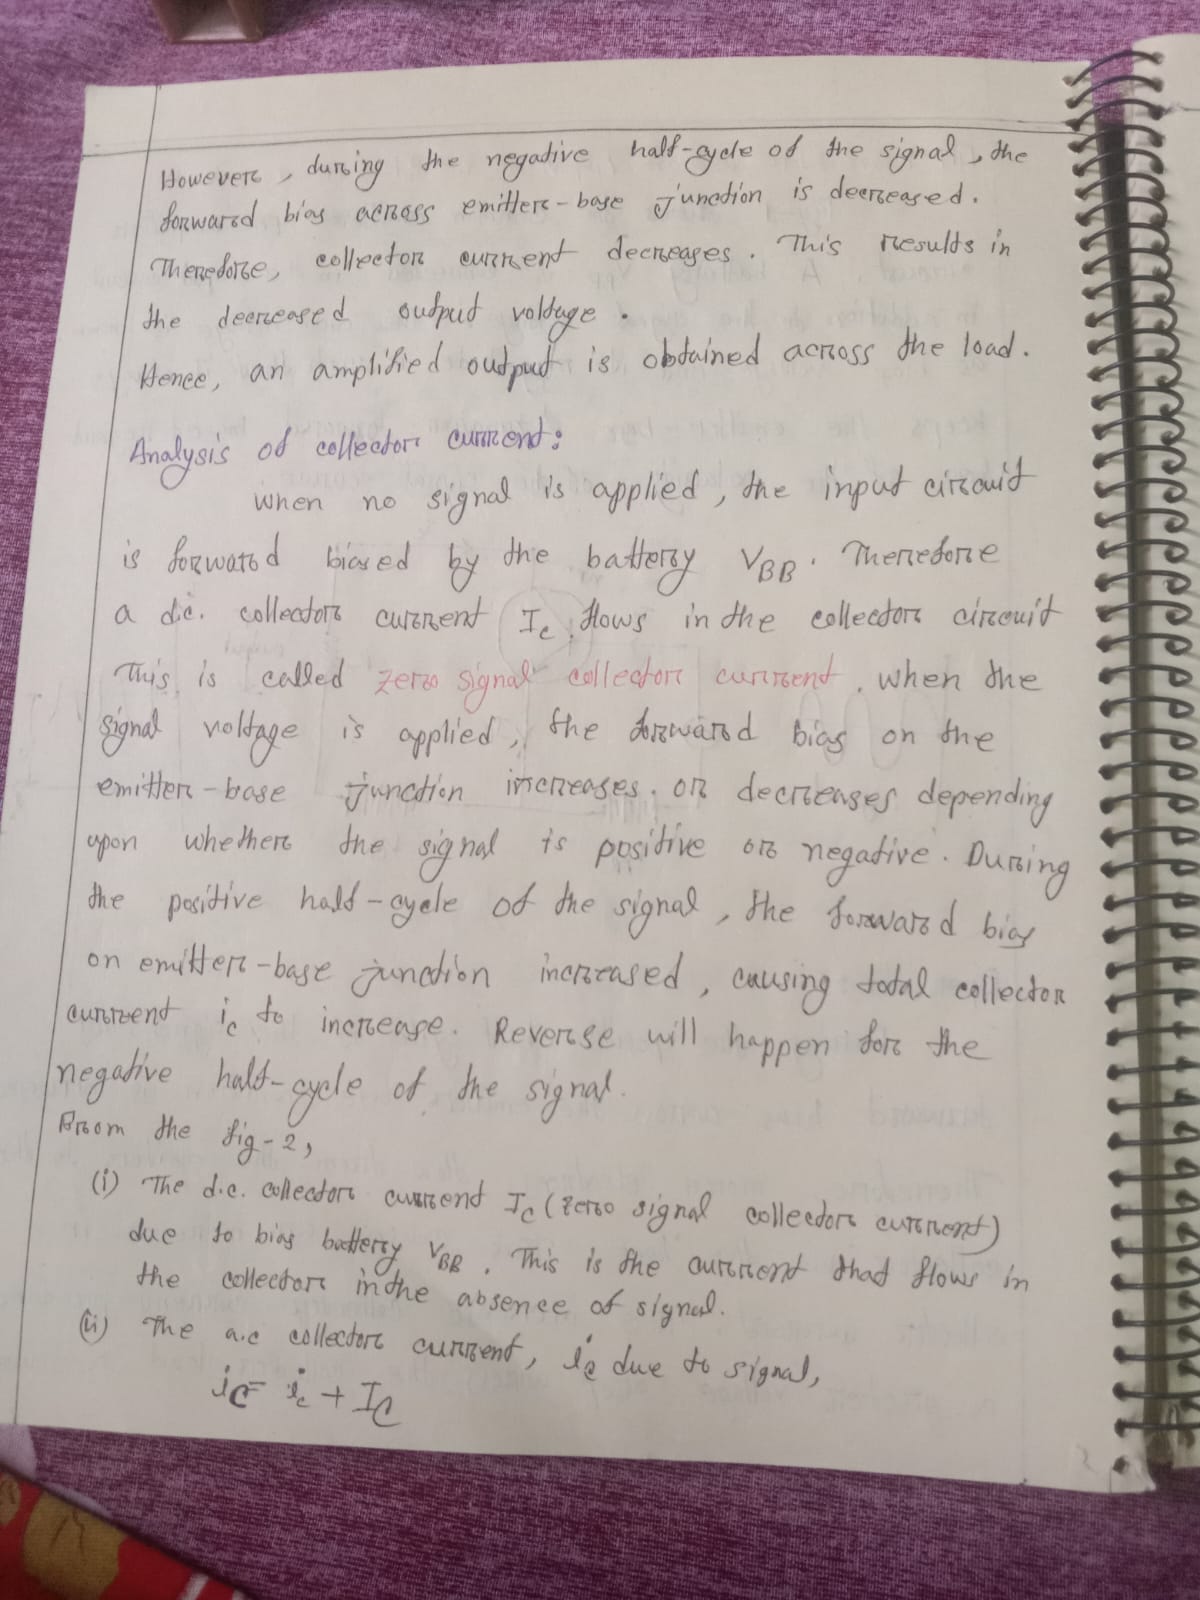 However, during the negative half-cycle of the signal, the
forward bias across emitter-base junction is decreased.
Therefore, collector current decreases. This results in
the decreased output voltage.
Hence, an amplified output is obtained across the load.
Analysis of collector current:
When no signal is applied, the input circuit
is forward biased by the battery VBB. Therefore
a d.c. collector current Ic flows in the collector circuit
This is called zero signal collector current. When the
signal voltage is applied, the forward bias on the
emitter-base junction increases. or decreases depending
upon whether the signal is positive or negative. During
the positive half-cycle of the signal, the forward bias
on emitter-base junction increased, causing total collector
current ic to increase. Reverse will happen for the
negative half-cycle of the signal.
From the fig-2,
(i) The d.c. collector current Ic (zero signal collector current)
due to bias battery VBB. This is the current that flows in
the collector in the absence of signal.
(ii) The a.c collector current, ic due to signal,
iC = ic + IC